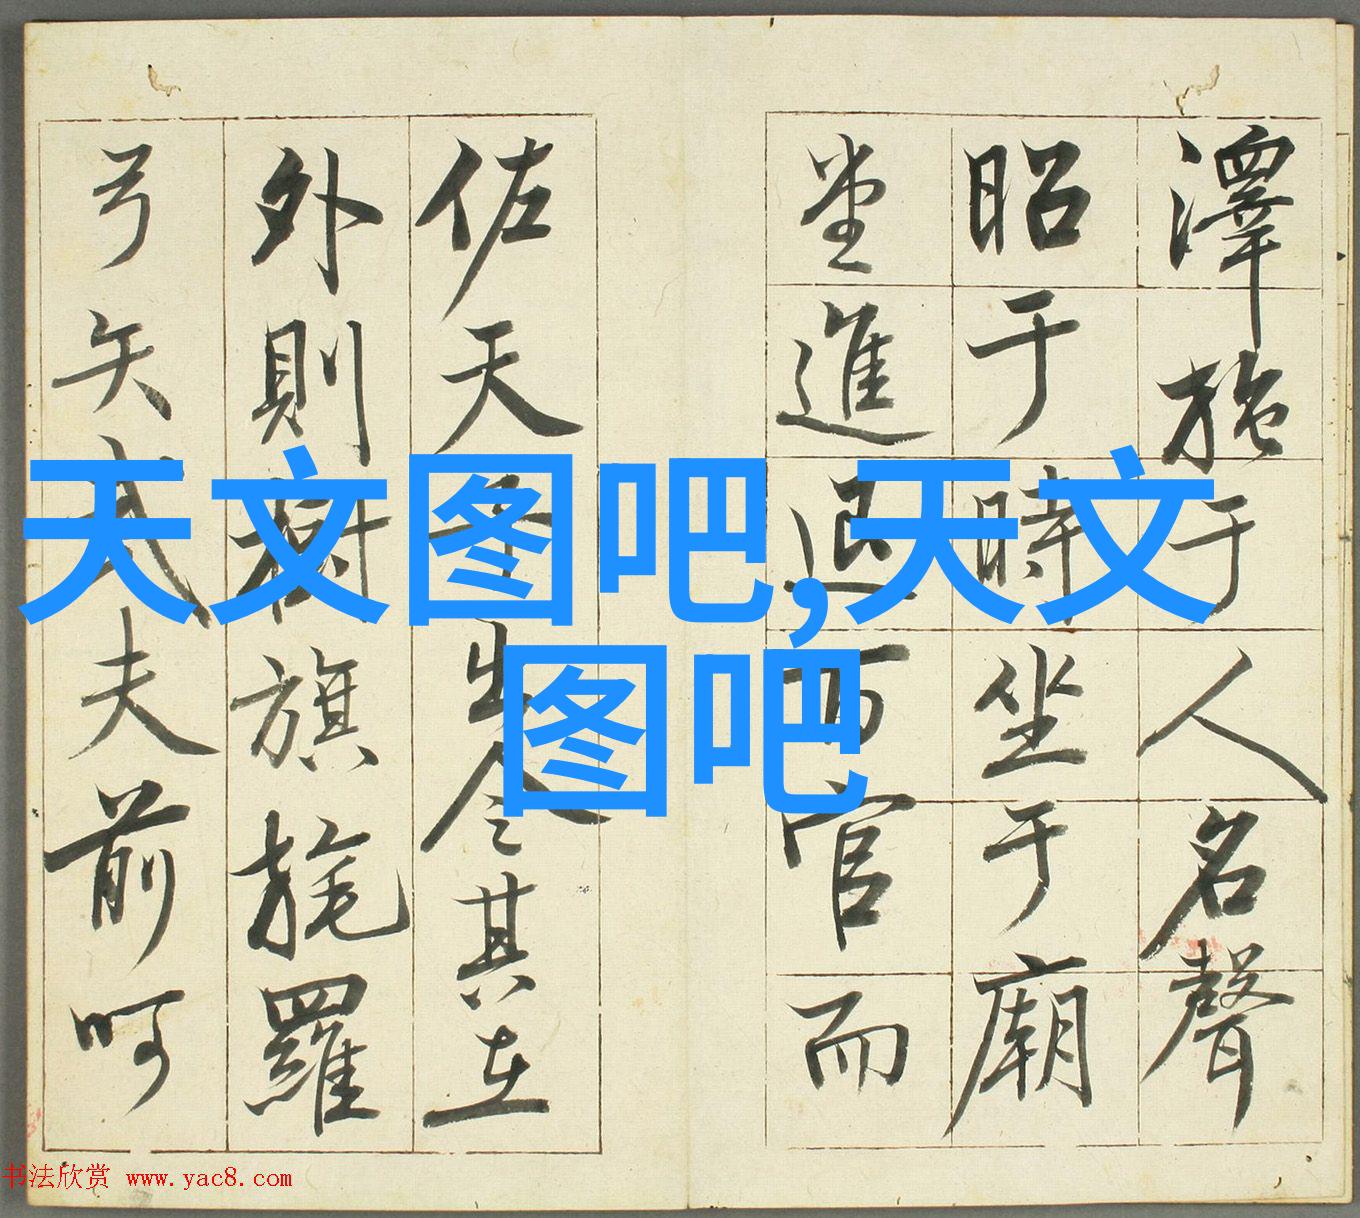 澤施于人名聲
昭于時坐于廟
堂進退百官而
佐天子出令其在
外則樹旗旄羅
弓矢武夫前呵
天文图吧,天文
图吧
书法欣赏 www.yac8.com